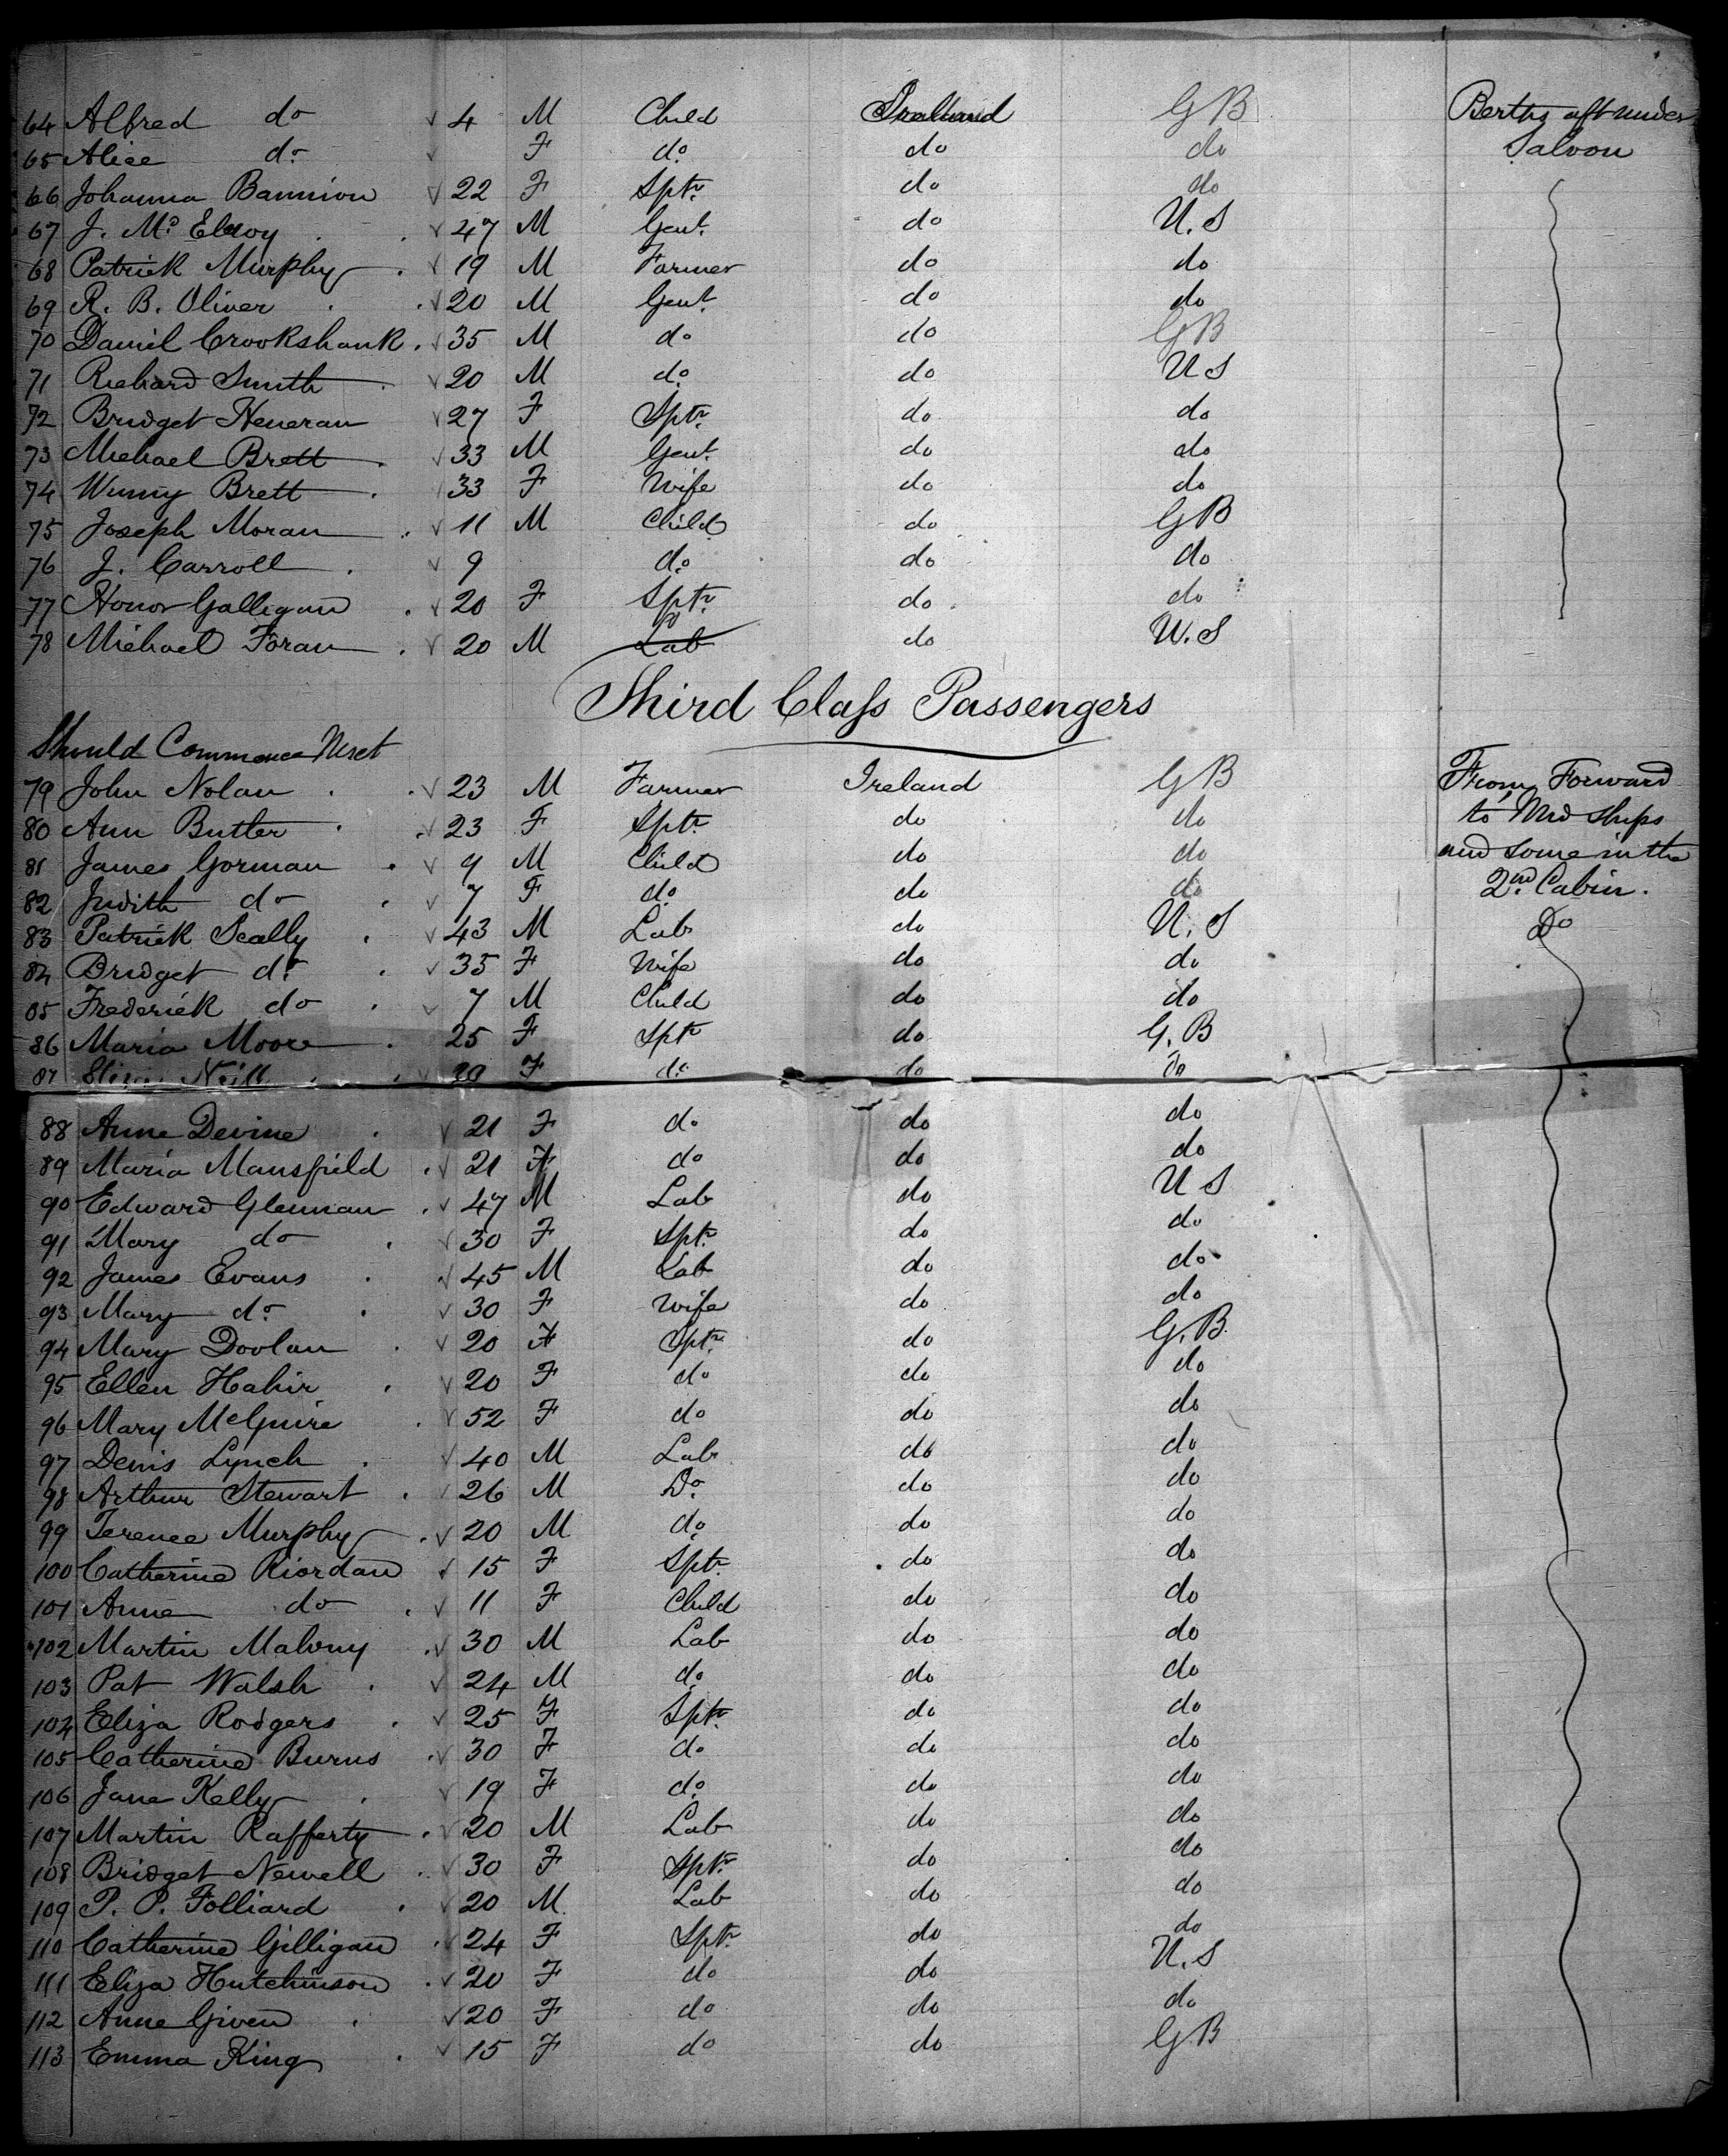 64 Alfred do 4 M Child Ireland GB Berths aft under
65 Alice do F do do do Saloon
66 Johanna Bannion 22 F Sptr. do do
67 J. Mc Elroy 47 M Gent. do U.S
68 Patrick Murphy 19 M Farmer do do
69 R. B. Oliver 20 M Gent. do do
70 Daniel Crookshank 35 M do do GB
71 Richard Smith 20 M do do US
72 Bridget Heneran 27 F Sptr. do do
73 Michael Brett 33 M Gent. do do
74 Winny Brett 33 F Wife do do
75 Joseph Moran 11 M Child do GB
76 J. Carroll 9 do do do
77 Honor Galligan 20 F Sptr. do do
78 Michael Foran 20 M Lab do U.S
Third Class Passengers
Should Commence Next
79 John Nolan 23 M Farmer Ireland GB From Forward
80 Ann Butler 23 F Sptr. do do to Mid Ships
81 James Gorman 9 M Child do do and some in the
82 Judith do 7 F do do do 2nd Cabin.
83 Patrick Scally 43 M Lab do U.S Do
84 Bridget do 35 F Wife do do
85 Frederick do 7 M Child do do
86 Maria Moore 25 F Sptr do G.B
87 Neill F do do do
88 Anne Devine 21 F do do do
89 Maria Mansfield 21 F do do do
90 Edward Glennan 47 M Lab do US
91 Mary do 30 F Sptr. do do
92 James Evans 45 M Lab do do
93 Mary do 30 F Wife do do
94 Mary Doolan 20 F Sptr. do G.B.
95 Ellen Hahir 20 F do do do
96 Mary McGuire 52 F do do do
97 Denis Lynch 40 M Lab do do
98 Arthur Stewart 26 M Do. do do
99 Terence Murphy 20 M do do do
100 Catherine Riordan 15 F Sptr. do do
101 Anne do 11 F Child do do
102 Martin Malony 30 M Lab do do
103 Pat Walsh 24 M do do do
104 Eliza Rodgers 25 F Sptr. do do
105 Catherine Burns 30 F do do do
106 Jane Kelly 19 F do do do
107 Martin Rafferty 20 M Lab do do
108 Bridget Newell 30 F Sptr. do do
109 P. P. Folliard 20 M Lab do do
110 Catherine Gilligan 24 F Sptr. do do
111 Eliza Hutchinson 20 F do do U.S
112 Anne Given 20 F do do do
113 Emma King 15 F do do GB